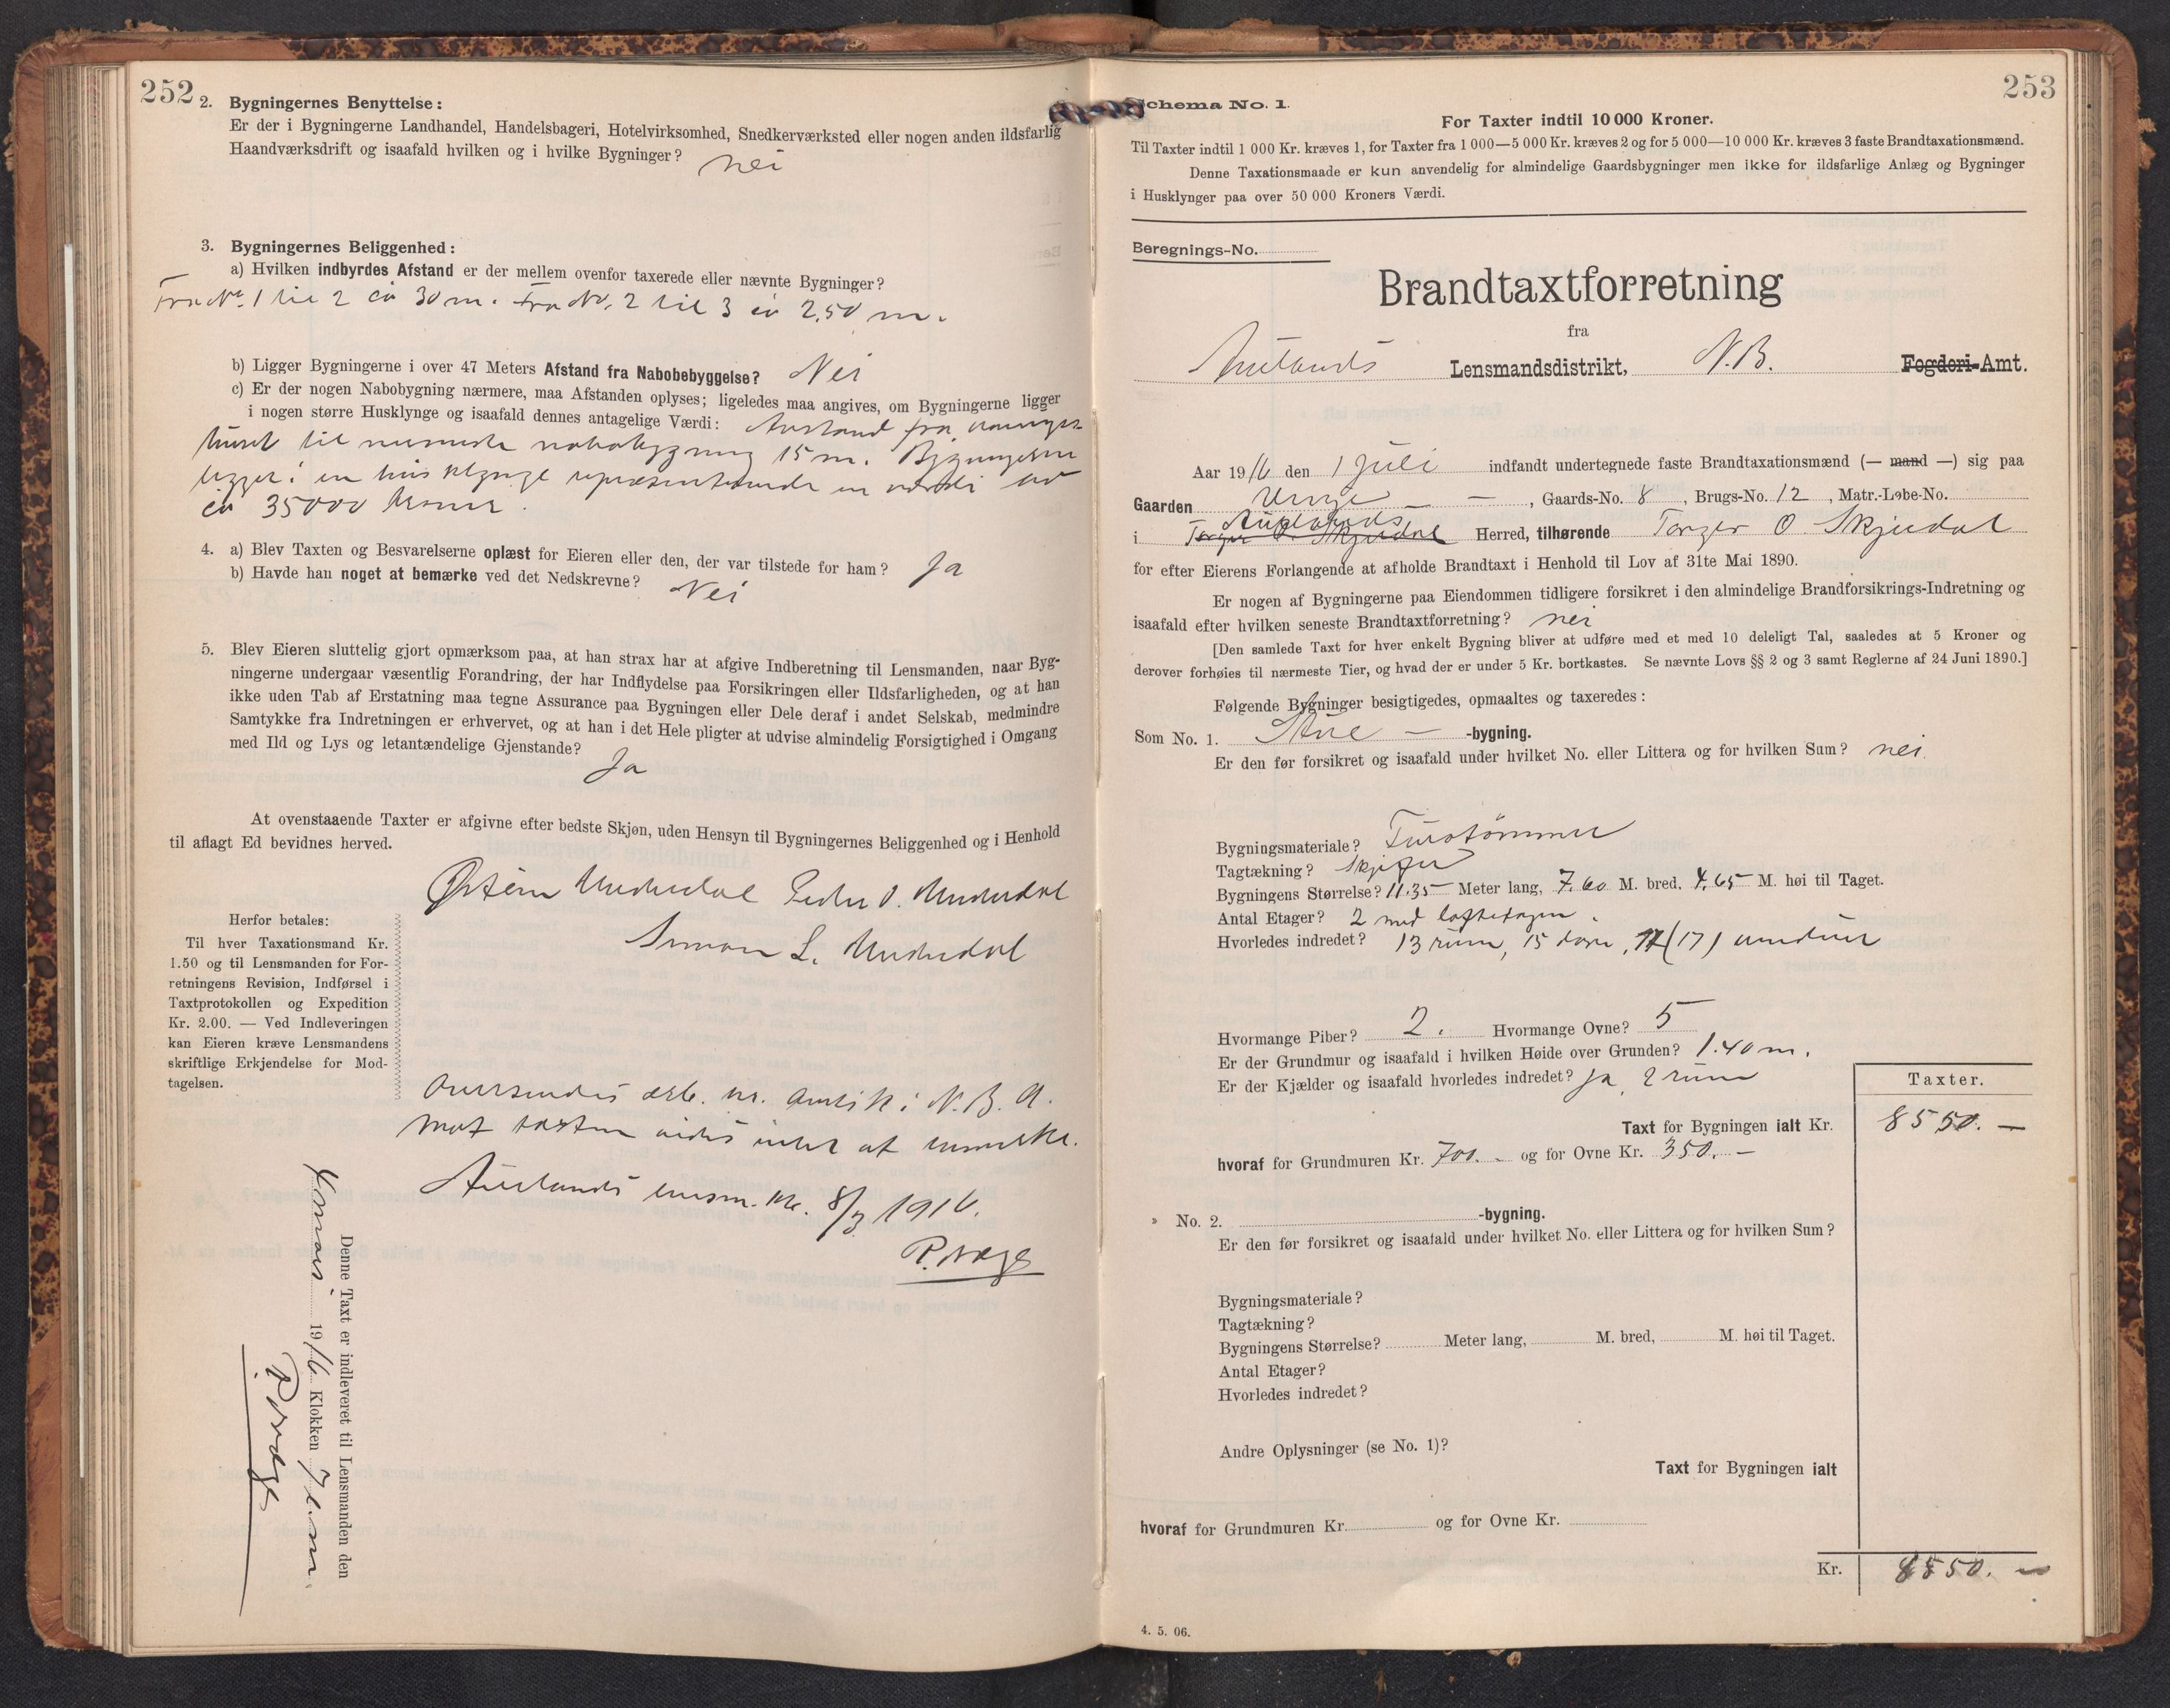 252
2. Bygningernes Benyttelse:
Er der i Bygningerne Landhandel, Handelsbageri, Hotelvirksomhed, Snedkerværksted eller nogen anden ildsfarlig
Haandværksdrift og isaafald hvilken og i hvilke Bygninger? nei
3. Bygningernes Beliggenhed:
a) Hvilken indbyrdes Afstand er der mellem ovenfor taxerede eller nævnte Bygninger?
Fra No. 1 til 2 ca 30 m. Fra No. 2 til 3 ca 2,50 m.
b) Ligger Bygningerne i over 47 Meters Afstand fra Nabobebyggelse? Nei
c) Er der nogen Nabobygning nærmere, maa Afstanden oplyses; ligeledes maa angives, om Bygningerne ligger
i nogen større Husklynge og isaafald dennes antagelige Værdi: Avstand fra vaanings
huset til nærmeste nabobygning 15 m. Bygningerne
ligger i en husklynge repræsenterende en værdi av
ca 35000 kroner.
4. a) Blev Taxten og Besvarelserne oplæst for Eieren eller den, der var tilstede for ham? Ja
b) Havde han noget at bemærke ved det Nedskrevne? Nei
5. Blev Eieren sluttelig gjort opmærksom paa, at han strax har at afgive Indberetning til Lensmanden, naar Byg-
ningerne undergaar væsentlig Forandring, der har Indflydelse paa Forsikringen eller Ildsfarligheden, og at han
ikke uden Tab af Erstatning maa tegne Assurance paa Bygningen eller Dele deraf i andet Selskab, medmindre
Samtykke fra Indretningen er erhvervet, og at han i det Hele pligter at udvise almindelig Forsigtighed i Omgang
med Ild og Lys og letantændelige Gjenstande? Ja
At ovenstaaende Taxter er afgivne efter bedste Skjøn, uden Hensyn til Bygningernes Beliggenhed og i Henhold
til aflagt Ed bevidnes herved.
Østein Underdal Peder O. Underdal
Simon L. Underdal
Herfor betales:
Til hver Taxationsmand Kr.
1.50 og til Lensmanden for For-
retningens Revision, Indførsel i
Taxtprotokollen og Expedition
Kr. 2.00. — Ved Indleveringen
kan Eieren kræve Lensmandens
skriftlige Erkjendelse for Mod-
tagelsen.
Oversendes ærb. hr. amtsk. i N. B. A.
Mot taxten vides intet at bemerke.
Aurlands lensm.k. 8/7 1916.
R. Næge
Denne Taxt er indleveret til Lensmanden den
19 16 Klokken 7 e.m.
R. Næge
253
Schema No. 1.
For Taxter indtil 10 000 Kroner.
Til Taxter indtil 1 000 Kr. kræves 1, for Taxter fra 1 000—5 000 Kr. kræves 2 og for 5 000—10 000 Kr. kræves 3 faste Brandtaxationsmænd.
Denne Taxationsmaade er kun anvendelig for almindelige Gaardsbygninger men ikke for ildsfarlige Anlæg og Bygninger
i Husklynger paa over 50 000 Kroners Værdi.
Beregnings-No.
Brandtaxtforretning
fra
Aurlands Lensmandsdistrikt, N. B. Fogderi-Amt.
Aar 1916 den 1 Juli indfandt undertegnede faste Brandtaxationsmænd (— mand —) sig paa
Gaarden Vinje — , Gaards-No. 8 , Brugs-No. 12 , Matr.-Løbe-No.
Aurlands
i Torger O. Skjerdal Herred, tilhørende Torger O. Skjerdal
for efter Eierens Forlangende at afholde Brandtaxt i Henhold til Lov af 31te Mai 1890.
Er nogen af Bygningerne paa Eiendommen tidligere forsikret i den almindelige Brandforsikrings-Indretning og
isaafald efter hvilken seneste Brandtaxtforretning? nei
[Den samlede Taxt for hver enkelt Bygning bliver at udføre med et med 10 deleligt Tal, saaledes at 5 Kroner og
derover forhøies til nærmeste Tier, og hvad der er under 5 Kr. bortkastes. Se nævnte Lovs §§ 2 og 3 samt Reglerne af 24 Juni 1890.]
Følgende Bygninger besigtigedes, opmaaltes og taxeredes:
Som No. 1. Stue — -bygning.
Er den før forsikret og isaafald under hvilket No. eller Littera og for hvilken Sum? nei.
Bygningsmateriale? Furotømmer
Tagtækning? Skjifer
Bygningens Størrelse? 11.35 Meter lang, 7.60 M. bred, 4.65 M. høi til Taget.
Antal Etager? 2 med loftetagen.
Hvorledes indredet? 13 rum, 15 døre, 17 (17) vinduer
Hvormange Piber? 2. Hvormange Ovne? 5
Er der Grundmur og isaafald i hvilken Høide over Grunden? 1.40 m.
Er der Kjælder og isaafald hvorledes indredet? Ja, 2 rum
Taxter.
Taxt for Bygningen ialt Kr. 8550. —
hvoraf for Grundmuren Kr. 700. - og for Ovne Kr. 350. —
» No. 2. -bygning.
Er den før forsikret og isaafald under hvilket No. eller Littera og for hvilken Sum?
Bygningsmateriale?
Tagtækning?
Bygningens Størrelse? Meter lang, M. bred, M. høi til Taget.
Antal Etager?
Hvorledes indredet?
Andre Oplysninger (se No. 1)?
Taxt for Bygningen ialt
hvoraf for Grundmuren Kr. og for Ovne Kr.
Kr. 8550. —
4. 5. 06.